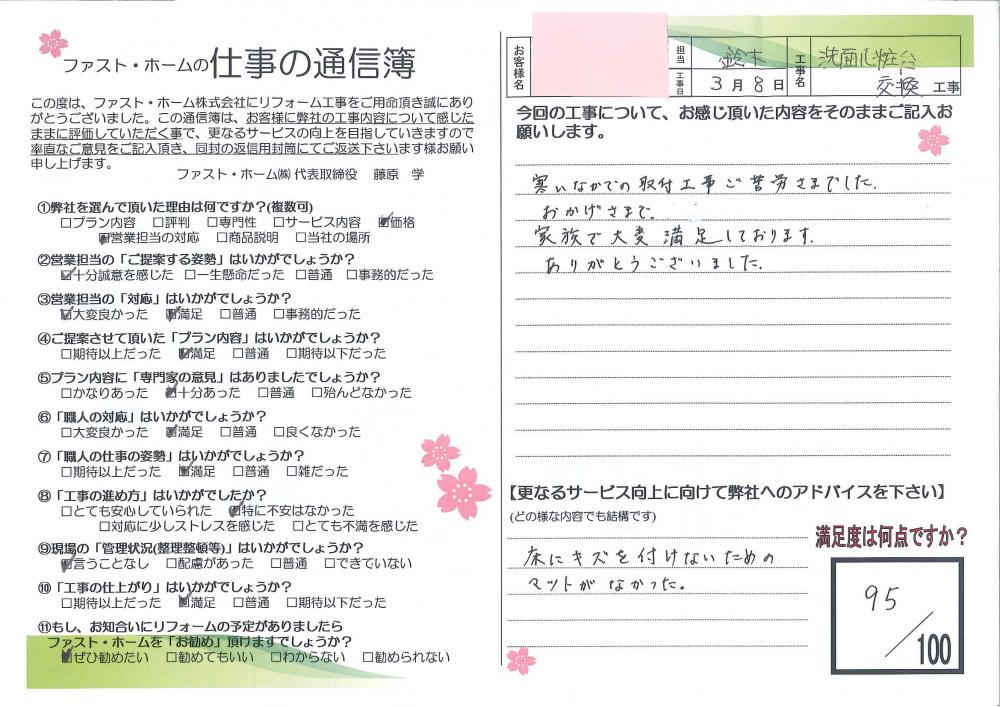 ファスト・ホームの仕事の通信簿
この度は、ファスト・ホーム株式会社にリフォーム工事をご用命頂き誠にあり
がとうございました。この通信簿は、お客様に弊社の工事内容について感じた
ままに評価していただく事で、更なるサービスの向上を目指していきますので
率直なご意見をご記入頂き、同封の返信用封筒にてご返送下さいます様お願い
申し上げます。
ファスト・ホーム㈱ 代表取締役 藤原 学
①弊社を選んで頂いた理由は何ですか?(複数可)
□プラン内容 □評判 □専門性 □サービス内容 ☑価格
☑営業担当の対応 □商品説明 □当社の場所
②営業担当の「ご提案する姿勢」はいかがでしょうか?
☑十分誠意を感じた □一生懸命だった □普通 □事務的だった
③営業担当の「対応」はいかがでしょうか?
☑大変良かった ☑満足 □普通 □事務的だった
④ご提案させて頂いた「プラン内容」はいかがでしょうか?
□期待以上だった ☑満足 □普通 □期待以下だった
⑤プラン内容に「専門家の意見」はありましたでしょうか?
□かなりあった ☑十分あった □普通 □殆んどなかった
⑥「職人の対応」はいかがでしょうか?
□大変良かった ☑満足 □普通 □良くなかった
⑦「職人の仕事の姿勢」はいかがでしょうか?
□期待以上だった ☑満足 □普通 □雑だった
⑧「工事の進め方」はいかがでしたか?
□とても安心していられた ☑特に不安はなかった
□対応に少しストレスを感じた □とても不満を感じた
⑨現場の「管理状況(整理整頓等)」はいかがでしょうか?
☑言うことなし □配慮があった □普通 □できていない
⑩「工事の仕上がり」はいかがでしょうか?
□期待以上だった ☑満足 □普通 □期待以下だった
⑪もし、お知合いにリフォームの予定がありましたら
ファスト・ホームを「お勧め」頂けますでしょうか?
☑ぜひ勧めたい □勧めてもいい □わからない □勧められない
お客様名
担当 鈴木
工事日 3月8日
工事名 洗面化粧台
交換 工事
今回の工事について、お感じ頂いた内容をそのままご記入お
願いします。
寒いなかでの取付工事ご苦労さまでした.
おかげさまで.
家族で大変満足しております.
ありがとうございました.
【更なるサービス向上に向けて弊社へのアドバイスを下さい】
(どの様な内容でも結構です)
床にキズを付けないための
マットがなかった。
満足度は何点ですか?
95/100